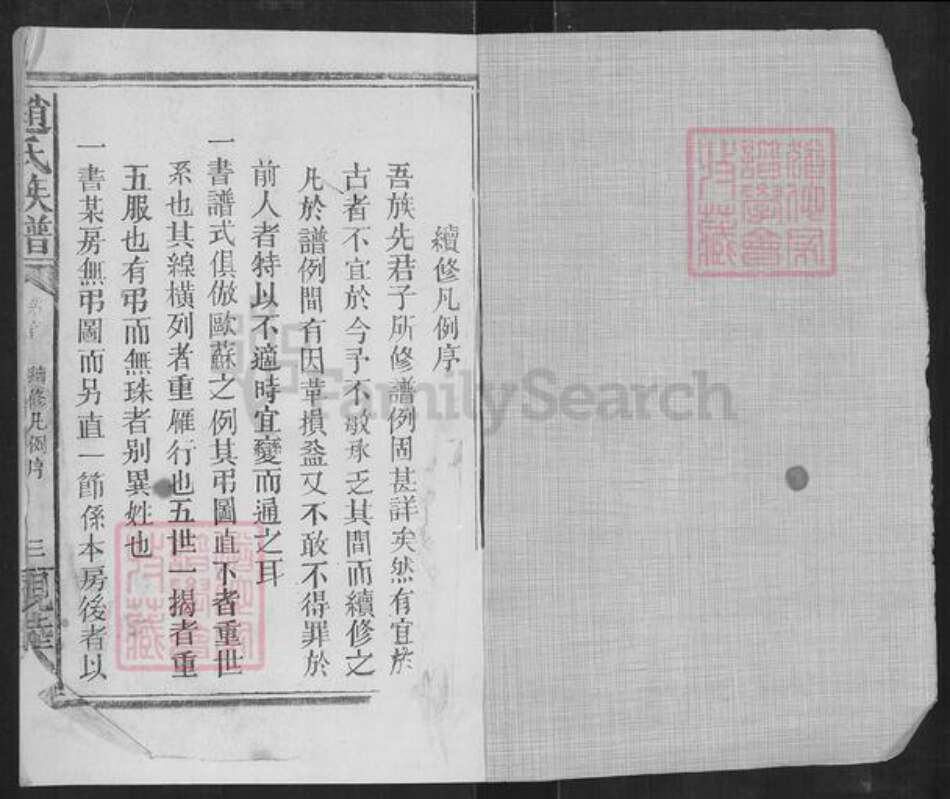 續修凡例序
吾族先君子所修譜例固甚詳矣然有宜於
古者不宜於今予不敏承乏其間而續修之
凡於譜例間有因革損益又不敢不得罪於
前人者特以不適時宜變而通之耳
一書譜式俱倣歐蘇之例其弔圖直下者重世
系也其線橫列者重雁行也五世一揭者重
五服也有弔而無珠者别異姓也
一書某房無弔圖而另直一節係本房後者以
趙氏族譜
續修凡例序
三
FamilySearch